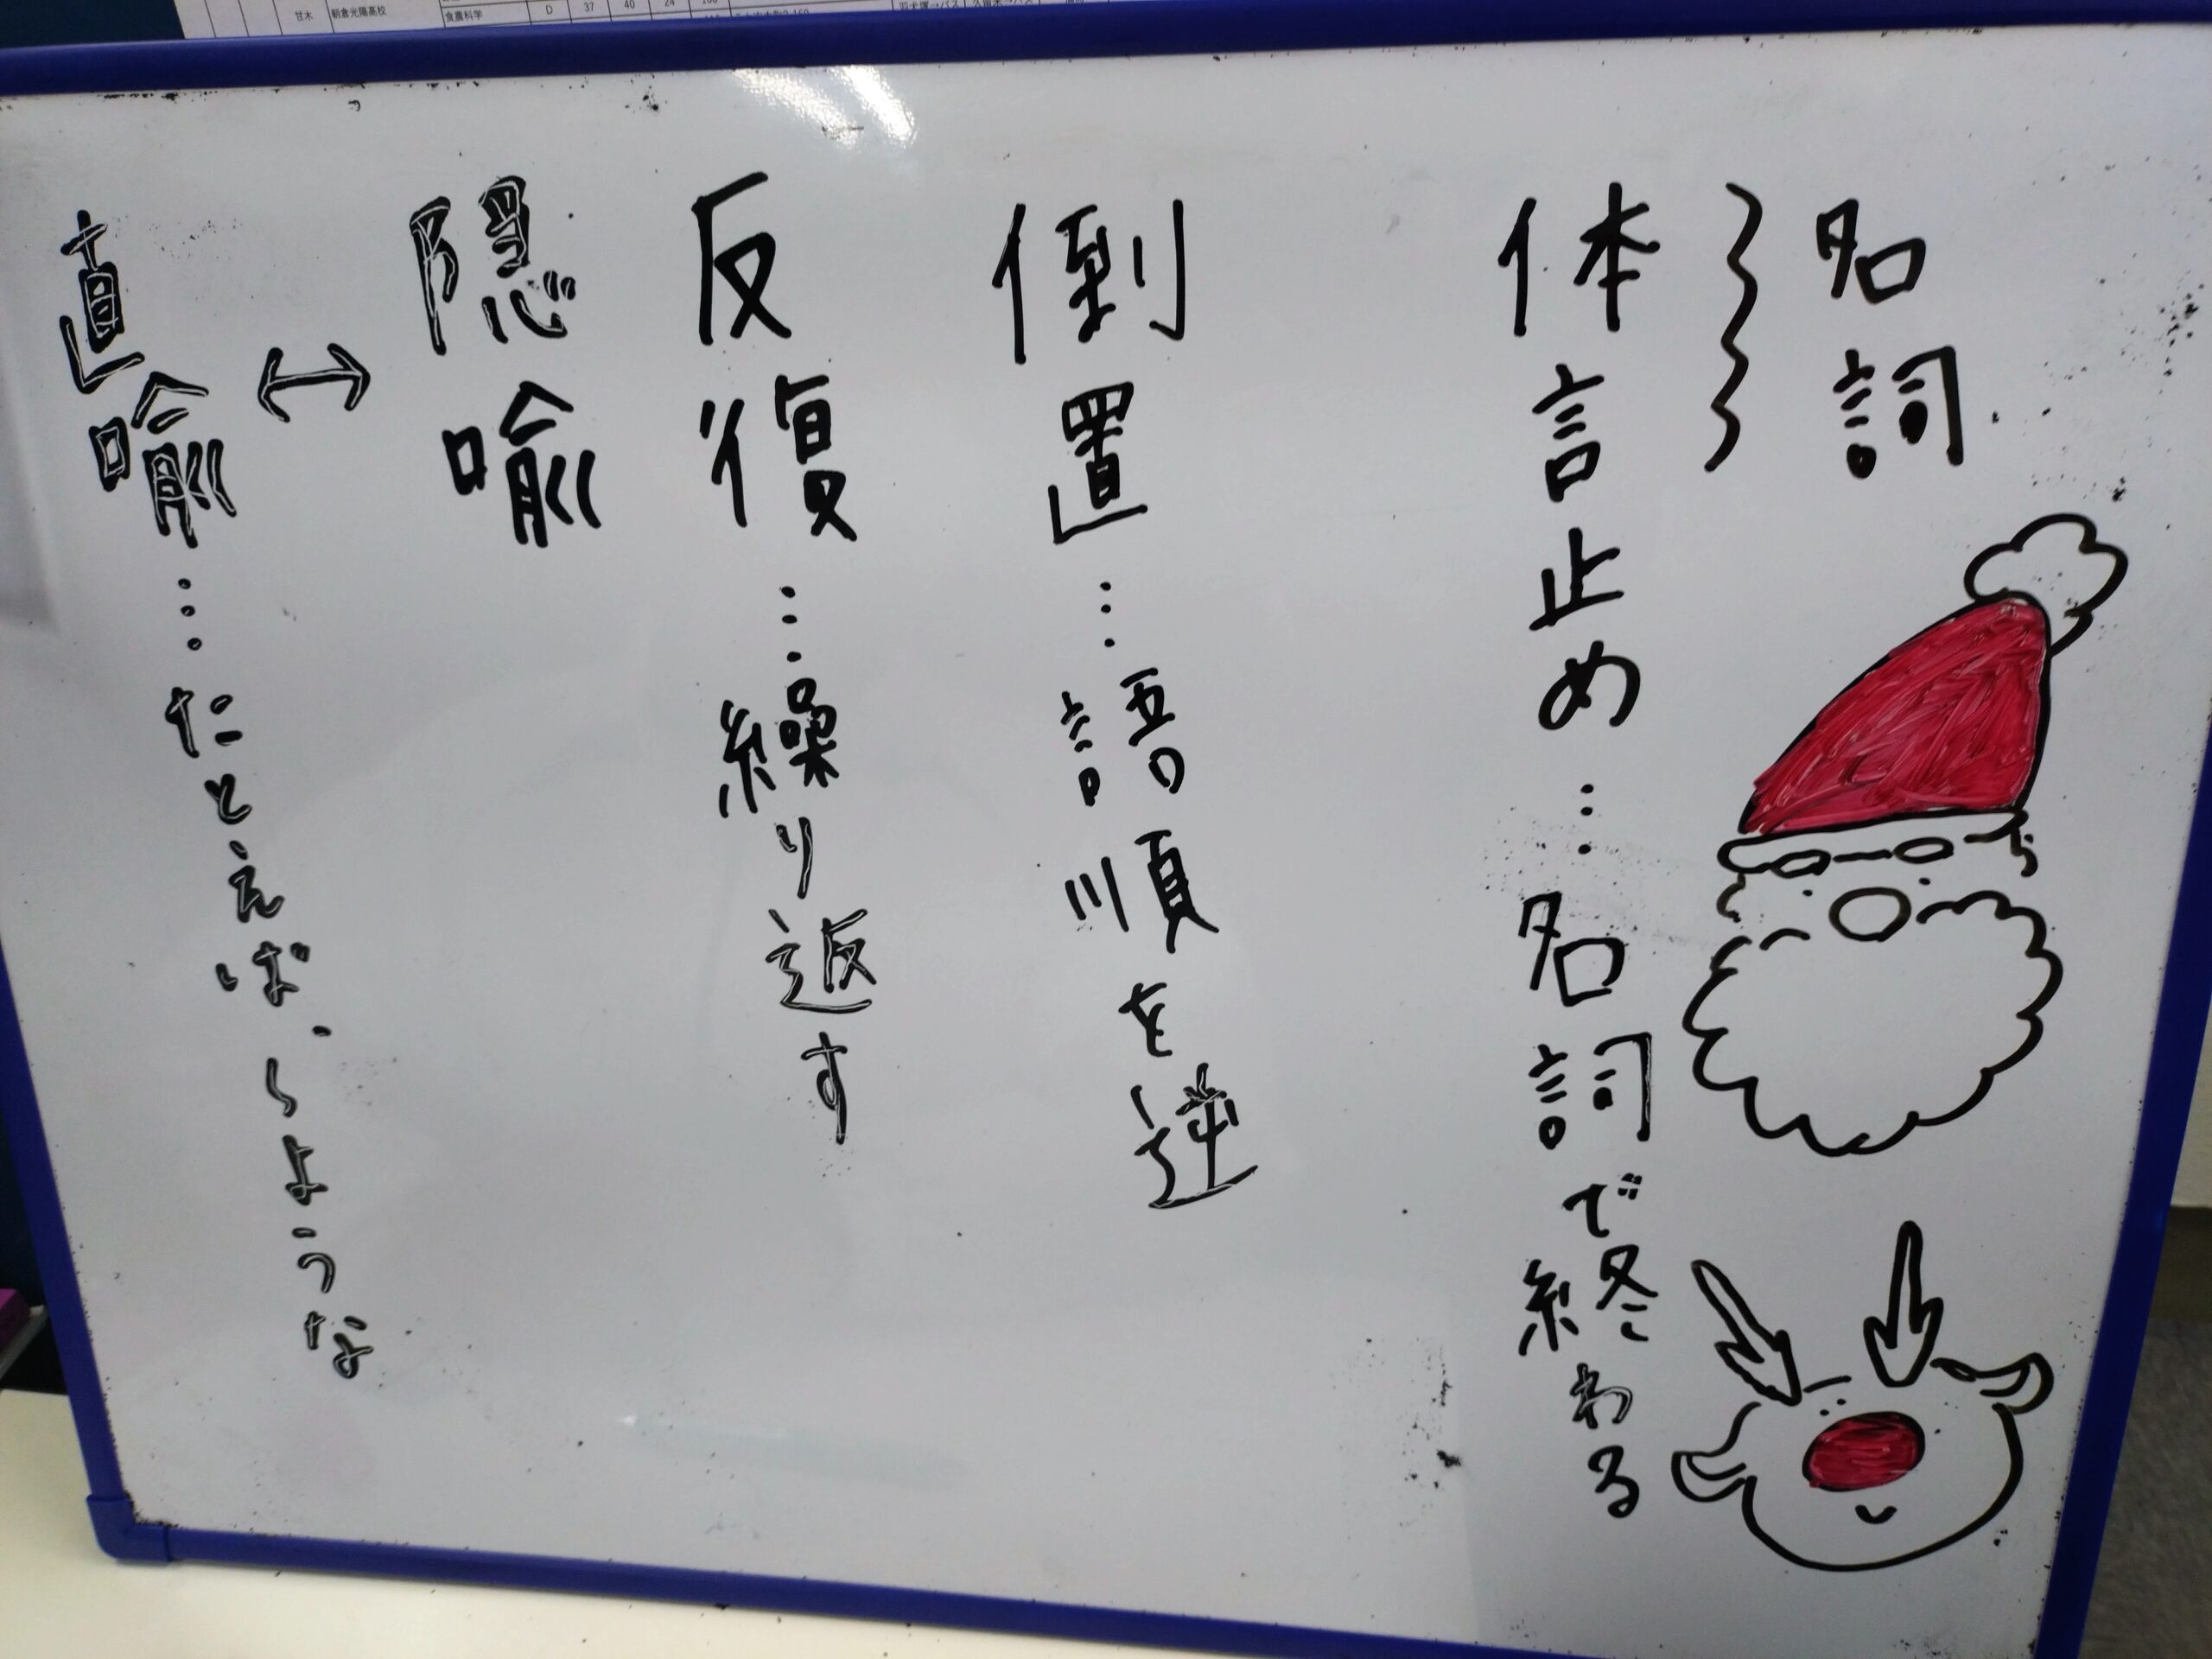 甘木 朝倉光陽高校
食農科学 D 37 40 24
名詞
体言止め…名詞で終わる
倒置…語順を逆
反復…繰り返す
隠喩
↔
直喩…たとえば、〜ような